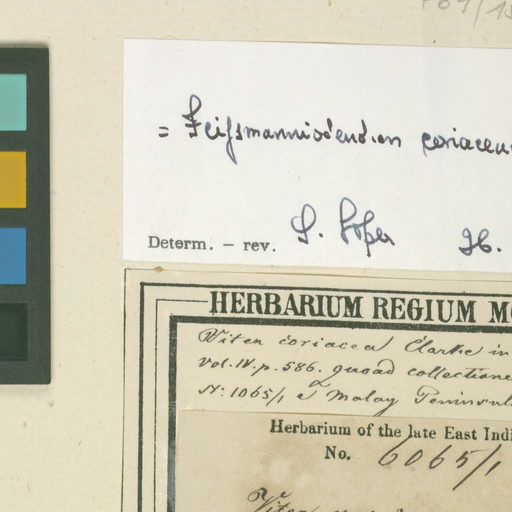 = Teijsmanniodendron coriaceu
Determ. – rev.
HERBARIUM REGIUM M
Vitex coriacea Clarke in
vol. IV. p. 586. quoad collectione
N: 1065/1 e Malay Peninsul
Herbarium of the late East Indi
No. 6065/1
Vitex